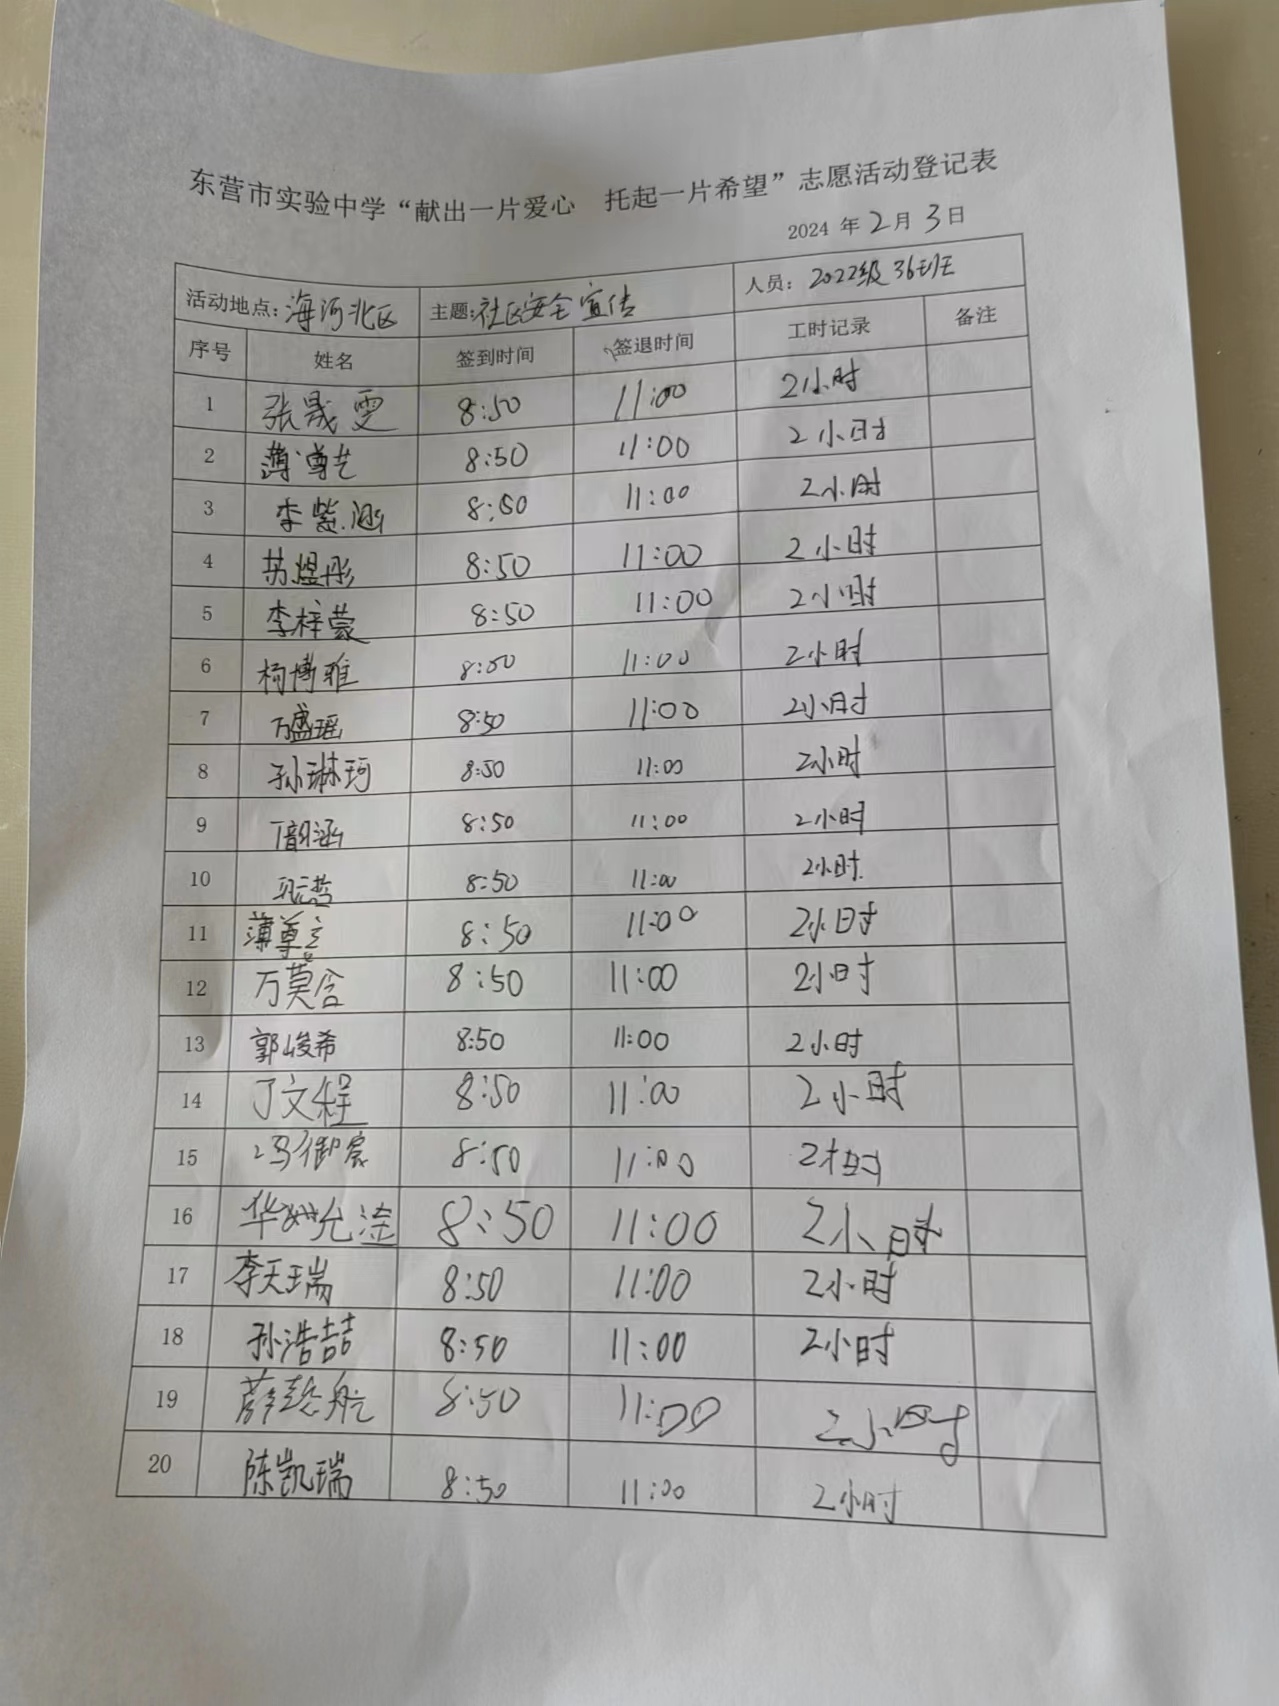 东营市实验中学“献出一片爱心 托起一片希望”志愿活动登记表
2024 年 2月 3日
活动地点: 海河北区 主题: 社区安全宣传 人员: 2022级36班
序号 姓名 签到时间 签退时间 工时记录 备注
1 张晟雯 8:50 11:00 2小时
2 薄尊艺 8:50 11:00 2小时
3 李紫涵 8:50 11:00 2小时
4 苏煜彤 8:50 11:00 2小时
5 李梓蒙 8:50 11:00 2小时
6 杨博雅 8:50 11:00 2小时
7 万盛瑶 8:50 11:00 2小时
8 孙琳珂 8:50 11:00 2小时
9 丁韵涵 8:50 11:00 2小时
10 8:50 11:00 2小时
11 薄尊 8:50 11:00 2小时
12 万莫含 8:50 11:00 2小时
13 郭峻希 8:50 11:00 2小时
14 丁文程 8:50 11:00 2小时
15 冯御宸 8:50 11:00 2小时
16 8:50 11:00 2小时
17 李天瑞 8:50 11:00 2小时
18 孙浩喆 8:50 11:00 2小时
19 薛懿航 8:50 11:00 2小时
20 陈凯瑞 8:50 11:00 2小时